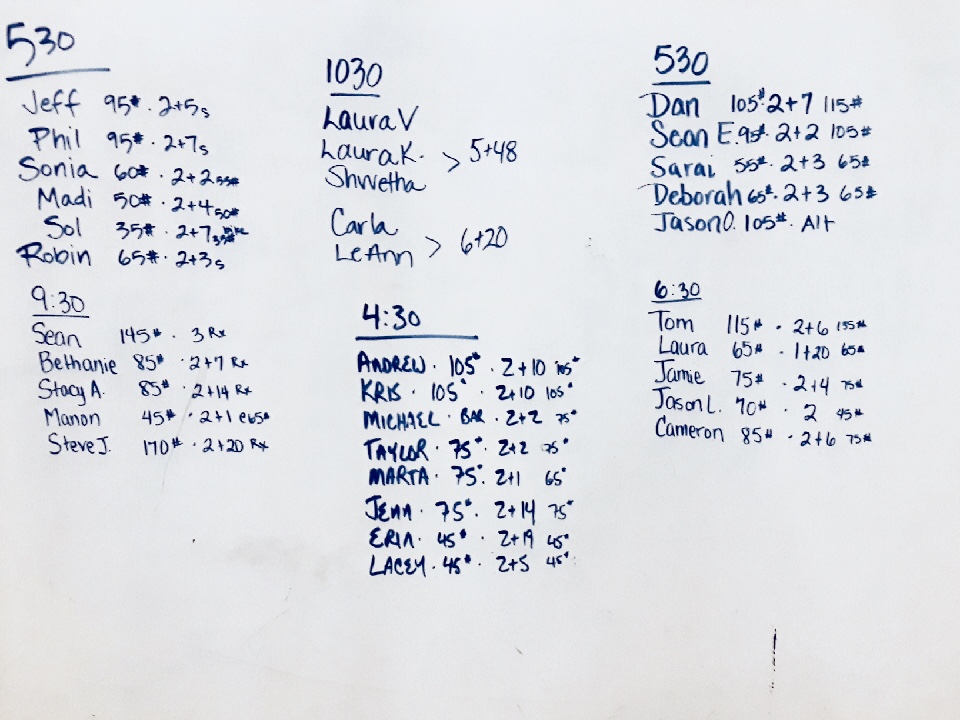 530
Jeff 95# · 2+5s
Phil 95# · 2+7s
Sonia 60# · 2+2 55#
Madi 50# · 2+4 50#
Sol 35# · 2+7 35#
Robin 65# · 2+3s
9:30
Sean 145# · 3 Rx
Bethanie 85# · 2+7 Rx
Stacy A. 85# · 2+14 Rx
Manon 45# · 2+1 @65#
Steve J. 170# · 2+20 Rx
1030
Laura V
Laura K. > 5+48
Shwetha
Carla
LeAnn > 6+20
4:30
ANDREW · 105# · 2+10 105#
KRIS · 105# · 2+10 105#
MICHAEL · BAR · 2+2 75#
TAYLOR · 75# · 2+2 75#
MARTA · 75# · 2+1 65#
JENN · 75# · 2+14 75#
ERIN · 45# · 2+19 45#
LACEY · 45# · 2+5 45#
530
Dan 105# · 2+7 115#
Sean E. 95# · 2+2 105#
Sarai 55# · 2+3 65#
Deborah 65# · 2+3 65#
Jason O. 105# · Alt
6:30
Tom 115# · 2+6 135#
Laura 65# · 1+20 65#
Jamie 75# · 2+4 75#
Jason L. 70# · 2 45#
Cameron 85# · 2+6 75#